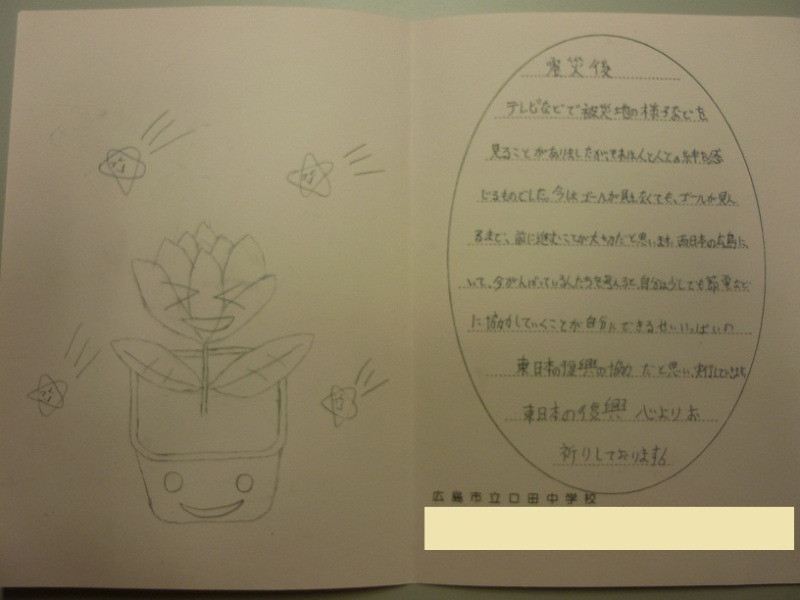 震災後
テレビなどで被災地の様子などを
見ることがありましたが、それは人と人との絆を感
じるものでした。今はゴールが見えなくても、ゴールが見え
るまで、前に進むことが大切だと思います。西日本の広島に
いて、今がんばっている人たちを考えると、自分は少しでも節電など
に協力していくことが自分にできるせいいっぱいの
東日本の復興の協力だと思い、実行しています。
東日本の復興心よりお
祈りしております。
広島市立口田中学校